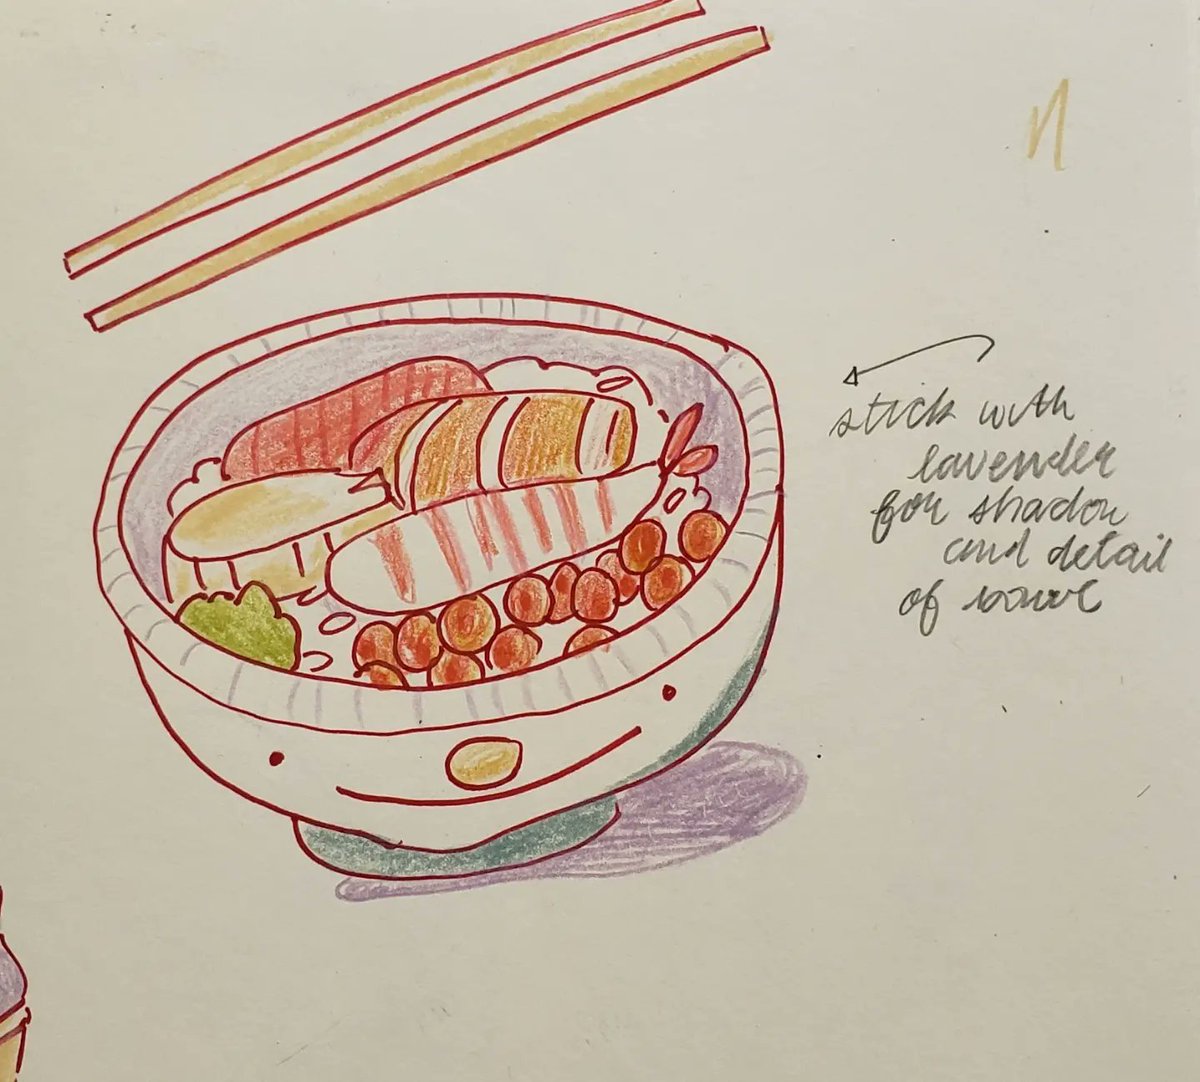 stick with
lavender
for shadow
and detail
of bowl